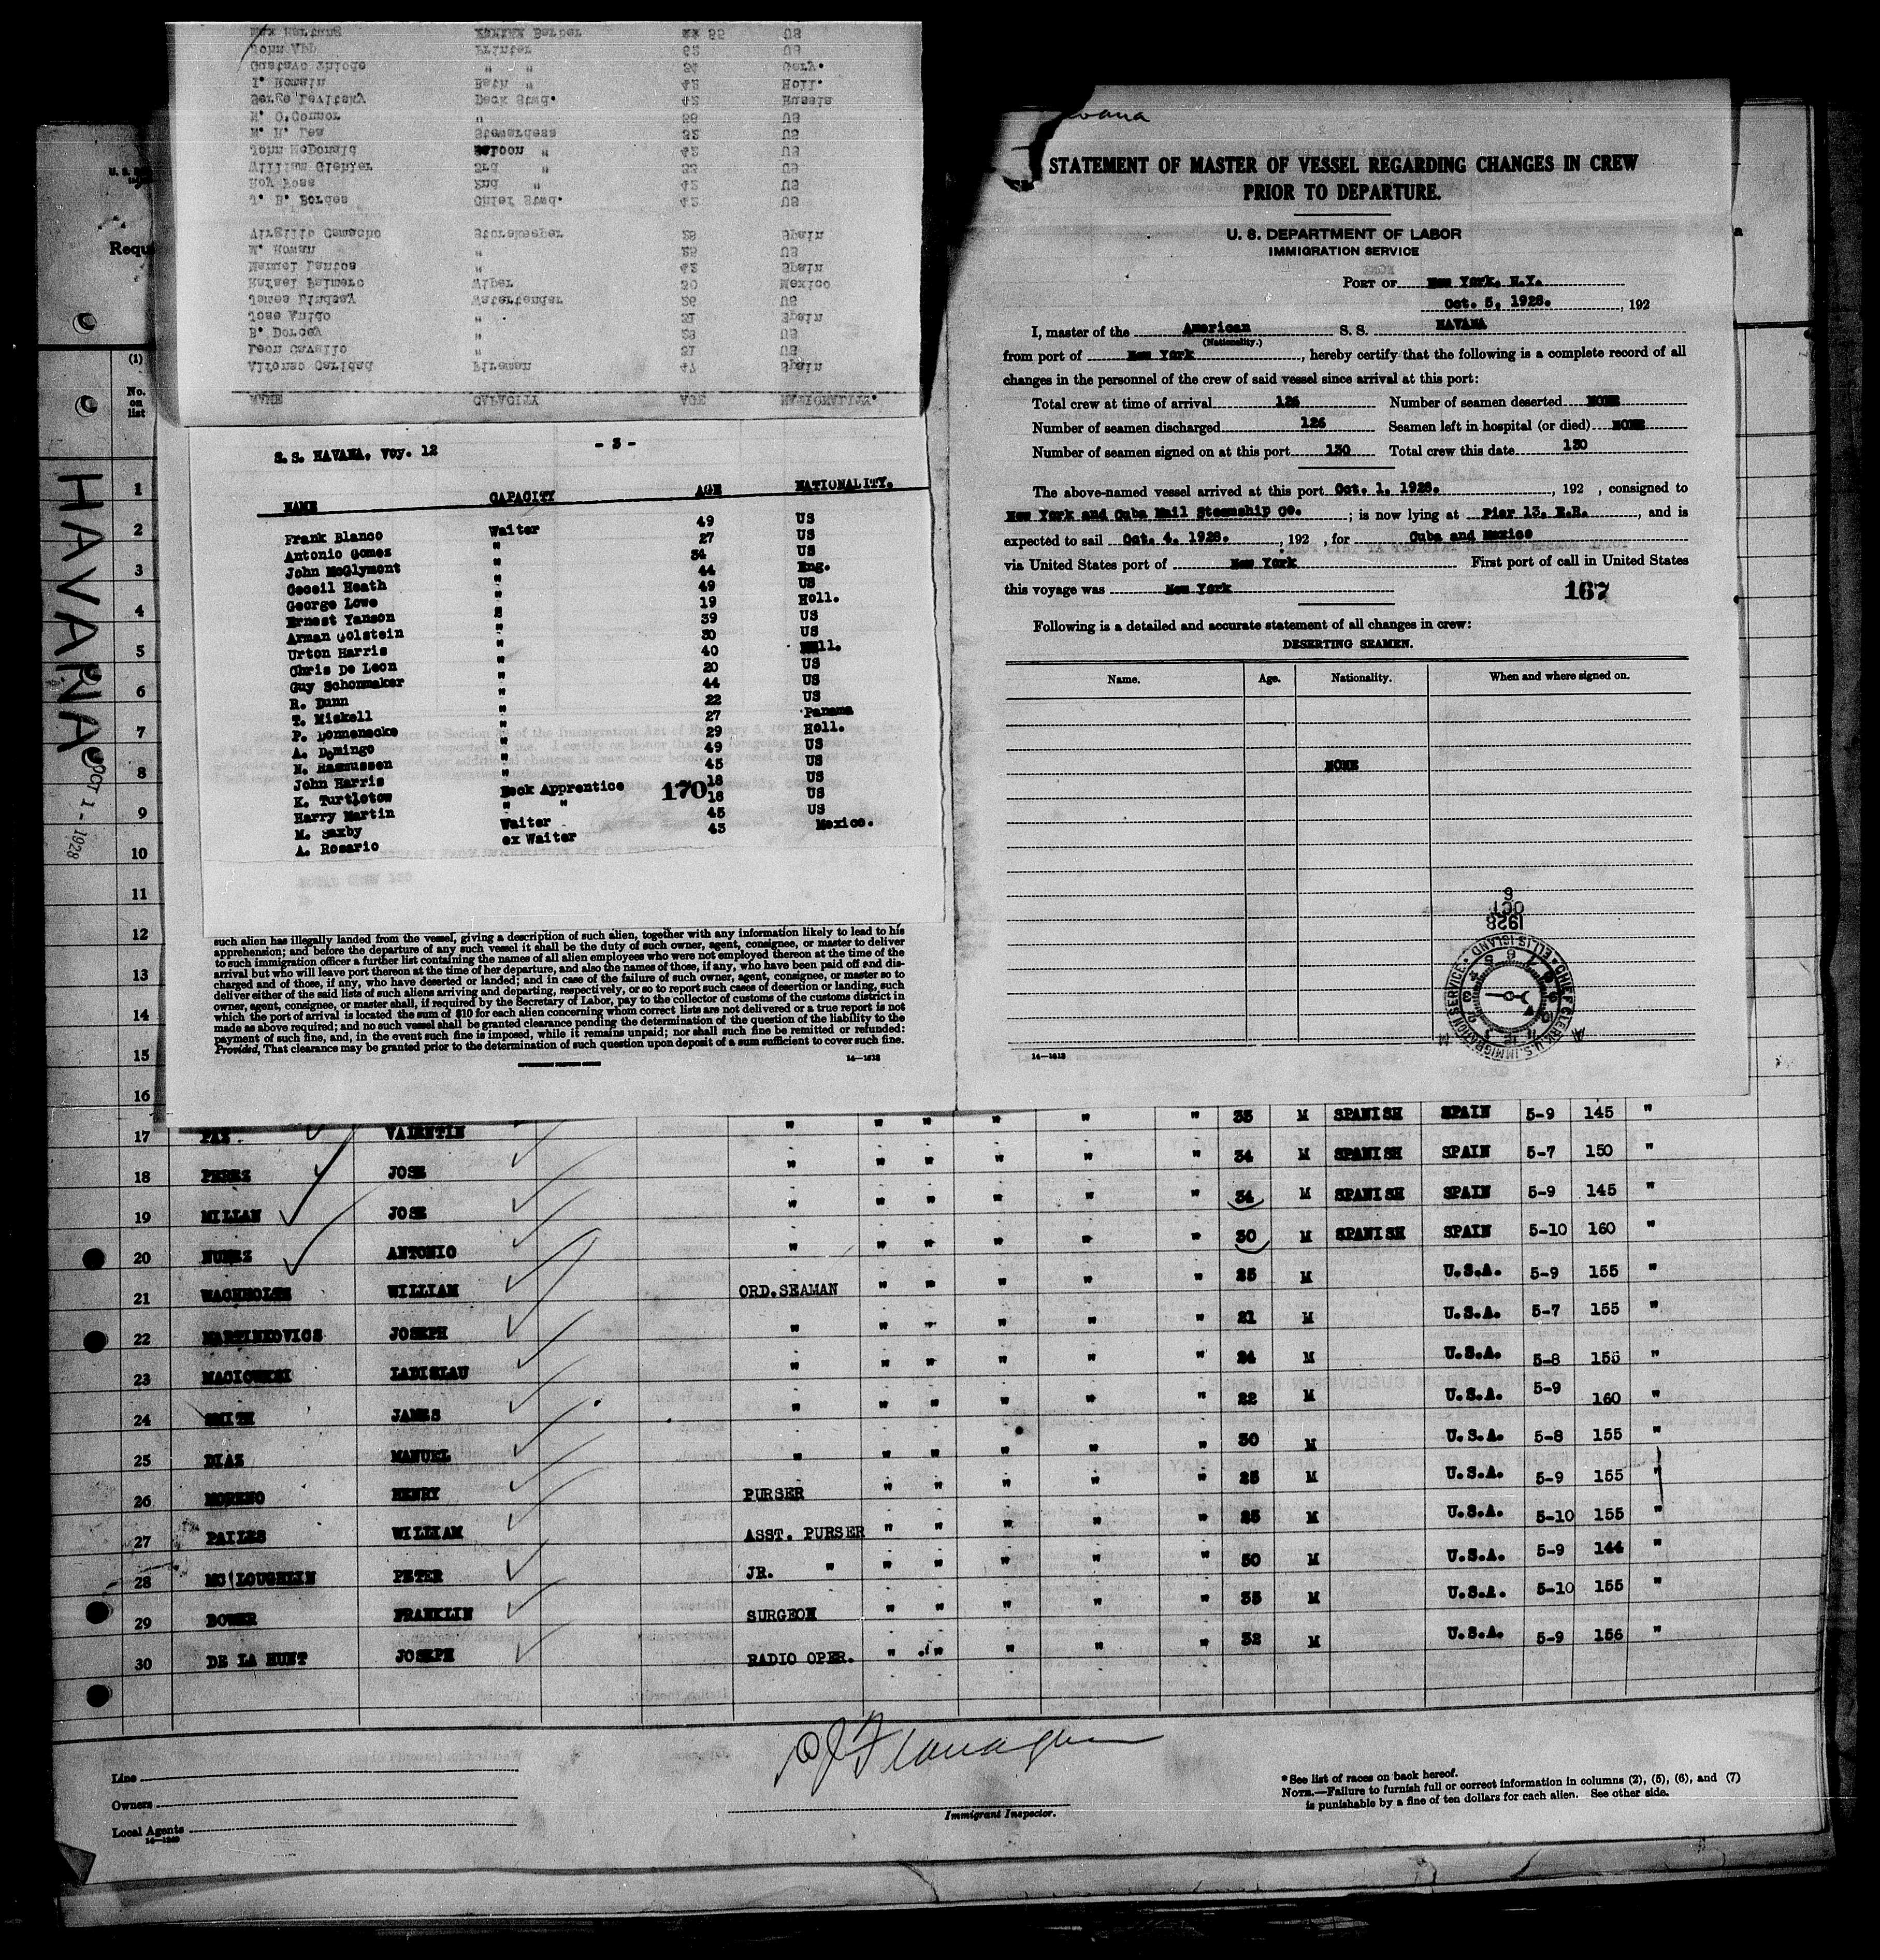 Havana
NAME CAPACITY AGE NATIONALITY.
Alfonso Caridad Fireman 47 Spain
Leon Cavallo " 31 US
B. Dorcey " 29 US
Jose Puldo " 31 Spain
James Lindsay Watertender 26 US
Rafael Palmero Wiper 30 Mexico
Manuel Santos " 42 Spain
M. Roman " 25 US
Virgilio Camacho Storekeeper 29 Spain
J. B. Bordes Chief Stwd. 42 US
Roy Foss 2nd " 42 US
William Giehler 3rd " 33 US
John McDonald Saloon " 42 US
M. H. Lea Stewardess 52 US
M. O.Connor " 56 US
Serge Levitsky Deck Stwd. 42 Russia
T. Romain Bath " 42 Holl.
Gustave Thiode " " 34 Gery.
John App Printer 62 US
Max Hartung Barber 55 US
S.S. HAVANA, Voy. 12 - 3 -
NAME CAPACITY AGE NATIONALITY.
Frank Blanco Waiter 49 US
Antonio Gomez " 27 US
John McGlymont " 34 US
Cecell Heath " 44 Eng.
George Lowe " 49 US
Ernest Yanson " 19 Holl.
Arman Golstein " 39 US
Urton Harris " 30 US
Chris De Leon " 40 Holl.
Guy Schonmaker " 20 US
R. Dunn " 44 US
T. Miskell " 22 US
P. Donnenecke " 27 Panama
A. Domingo " 29 Holl.
N. Rasmussen " 49 US
John Harris " 45 US
K. Turtletow Deck Apprentice 18 US
Harry Martin " " 18 US
M. Saxby Waiter 45 US
A. Rosario ex Waiter 43 Mexico.
170
such alien has illegally landed from the vessel, giving a description of such alien, together with any information likely to lead to his
apprehension; and before the departure of any such vessel it shall be the duty of such owner, agent, consignee, or master to deliver
to such immigration officer a further list containing the names of all alien employees who were not employed thereon at the time of the
arrival but who will leave port thereon at the time of her departure, and also the names of those, if any, who have been paid off and dis-
charged and of those, if any, who have deserted or landed; and in case of the failure of such owner, agent, consignee, or master so to
deliver either of the said lists of such aliens arriving and departing, respectively, or so to report such cases of desertion or landing, such
owner, agent, consignee, or master shall, if required by the Secretary of Labor, pay to the collector of customs of the customs district in
which the port of arrival is located the sum of $10 for each alien concerning whom correct lists are not delivered or a true report is not
made as above required; and no such vessel shall be granted clearance pending the determination of the question of the liability to the
payment of such fine, and, in the event such fine is imposed, while it remains unpaid; nor shall such fine be remitted or refunded:
Provided, That clearance may be granted prior to the determination of such question upon deposit of a sum sufficient to cover such fine.
14—1613
STATEMENT OF MASTER OF VESSEL REGARDING CHANGES IN CREW
PRIOR TO DEPARTURE.
U. S. DEPARTMENT OF LABOR
IMMIGRATION SERVICE
PORT OF New York. N.Y.
Oct. 5, 1928. , 192
I, master of the American S. S. HAVANA
(Nationality.)
from port of New York , hereby certify that the following is a complete record of all
changes in the personnel of the crew of said vessel since arrival at this port:
Total crew at time of arrival 126 Number of seamen deserted NONE
Number of seamen discharged 126 Seamen left in hospital (or died) NONE
Number of seamen signed on at this port 130 Total crew this date 130
The above-named vessel arrived at this port Oct. 1. 1928. , 192 , consigned to
New York and Cuba Mail Steamship Co. ; is now lying at Pier 13. E.R. , and is
expected to sail Oct. 4. 1928. , 192 , for Cuba and Mexico
via United States port of New York First port of call in United States
this voyage was New York
167
Following is a detailed and accurate statement of all changes in crew:
DESERTING SEAMEN.
Name. Age. Nationality. When and where signed on.
NONE
1928
OCT
6
CHIEF CLERK U.S. IMMIGRATION SERVICE ELLIS ISLAND
14—1613
HAVANA
OCT 1 - 1928
Requ
(1)
No.
on
list
1
2
3
4
5
6
7
8
9
10
11
12
13
14
15
16
17 PAZ VALENTIN " " " " " " 35 M SPANISH SPAIN 5-9 145 "
18 PEREZ JOSE " " " " " " 34 M SPANISH SPAIN 5-7 150 "
19 MILIAN JOSE " " " " " " 34 M SPANISH SPAIN 5-9 145 "
20 NUNEZ ANTONIO " " " " " " 30 M SPANISH SPAIN 5-10 160 "
21 WACHHOLTZ WILLIAM ORD.SEAMAN " " " " " 25 M U.S.A. 5-9 155 "
22 MARTINKOVICS JOSEPH " " " " " " 21 M U.S.A. 5-7 155 "
23 MACIOWSKI LADISLAU " " " " " " 24 M U.S.A. 5-8 155 "
24 SMITH JAMES " " " " " " 22 M U.S.A. 5-9 160 "
25 DIAZ MANUEL " " " " " " 30 M U.S.A. 5-8 155 "
26 MORENO HENRY PURSER " " " " " 25 M U.S.A. 5-9 155 "
27 PAILES WILLIAM ASST. PURSER " " " " " 25 M U.S.A. 5-10 155 "
28 MC LOUGHLIN PETER JR. " " " " " " 30 M U.S.A. 5-9 144 "
29 BOWER FRANKLIN SURGEON " " " " " 35 M U.S.A. 5-10 155 "
30 DE LA HUNT JOSEPH RADIO OPER. " " " " " 32 M U.S.A. 5-9 156 "
Line
Owners
Local Agents
14—1240
Flanagan
Immigrant Inspector.
*See list of races on back hereof.
NOTE.—Failure to furnish full or correct information in columns (2), (5), (6), and (7)
is punishable by a fine of ten dollars for each alien. See other side.